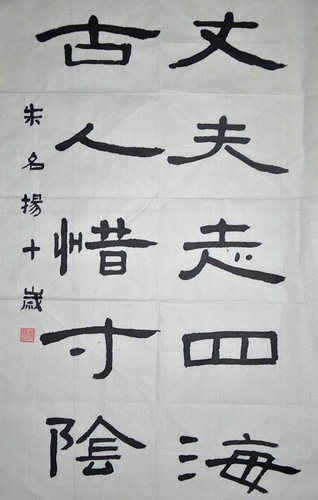 丈夫走四海
古人惜寸陰
朱名揚十歲